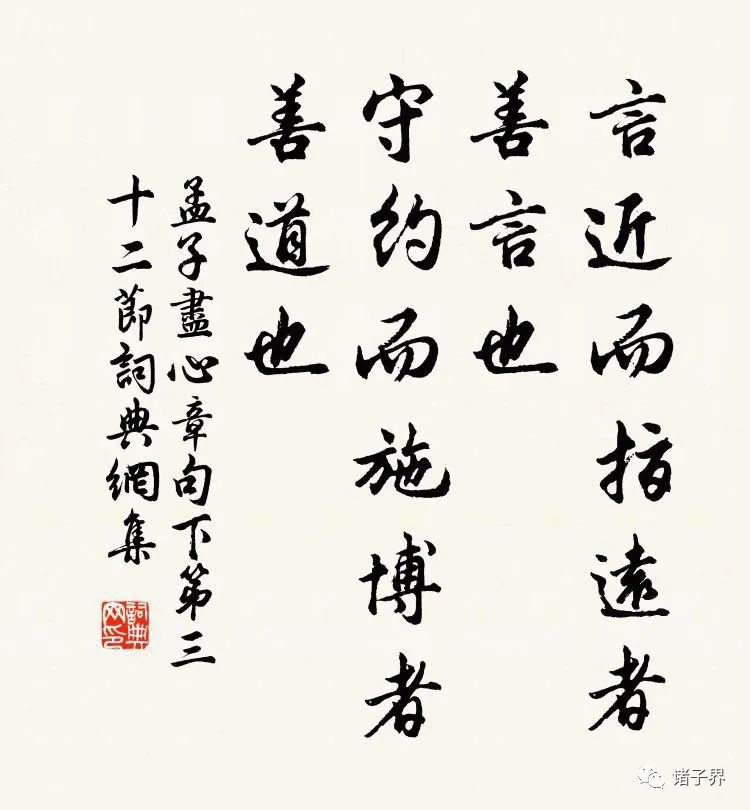 言近而指遠者
善言也
守約而施博者
善道也
孟子盡心章句下第三
十二節詞典網集
詞典
网印
诸子界